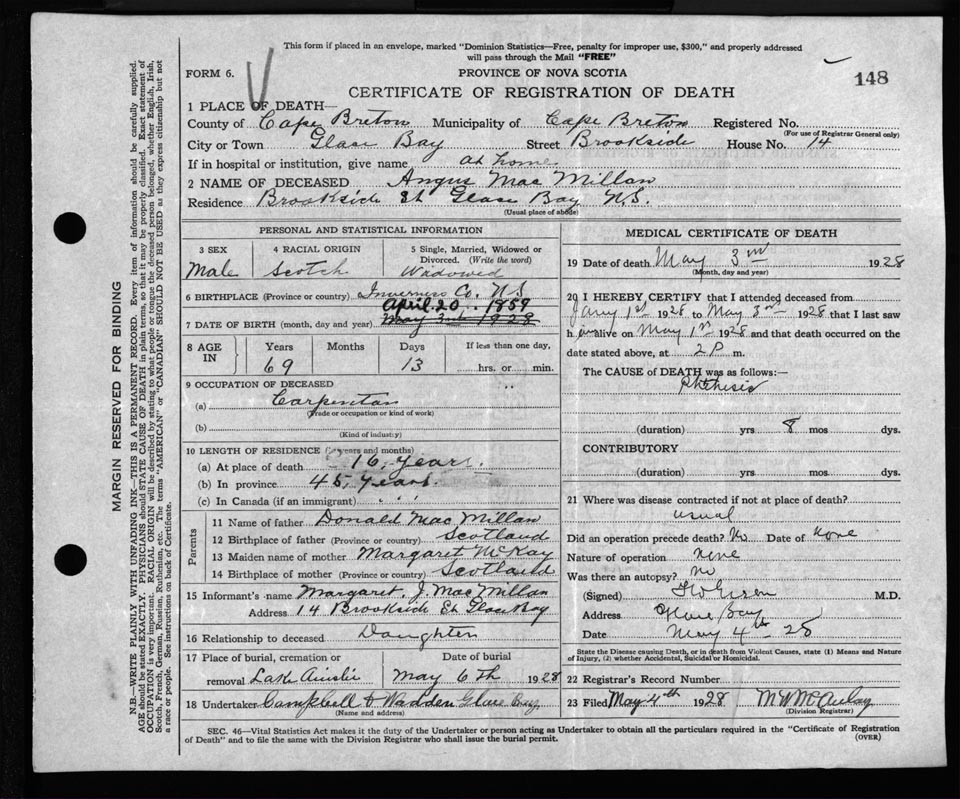 This form if placed in an envelope, marked "Dominion Statistics—Free, penalty for improper use, $300," and properly addressed
will pass through the Mail "FREE"
FORM 6.
PROVINCE OF NOVA SCOTIA
148
CERTIFICATE OF REGISTRATION OF DEATH
1 PLACE OF DEATH—
County of Cape Breton Municipality of Cape Breton Registered No.
(For use of Registrar General only)
City or Town Glace Bay Street Brookside House No. 14
If in hospital or institution, give name at home
2 NAME OF DECEASED Angus Mac Millan
Residence Brookside St Glace Bay N.S.
(Usual place of abode)
PERSONAL AND STATISTICAL INFORMATION
3 SEX 4 RACIAL ORIGIN 5 Single, Married, Widowed or
Divorced. (Write the word)
Male Scotch Widowed
6 BIRTHPLACE (Province or country) Inverness Co. N S
April. 20, 1859
7 DATE OF BIRTH (month, day and year) May 3rd 1928
8 AGE IN Years Months Days If less than one day,
69 13 hrs. or min.
9 OCCUPATION OF DECEASED
(a) Carpenter
(Trade or occupation or kind of work)
(b)
(Kind of industry)
10 LENGTH OF RESIDENCE (In years and months)
(a) At place of death 16, years.
(b) In province 45, years.
(c) In Canada (if an immigrant)
Parents
11 Name of father Donald Mac Millan
12 Birthplace of father (Province or country) Scotland
13 Maiden name of mother Margaret McKay
14 Birthplace of mother (Province or country) Scotland
15 Informant's name Margaret. J. Mac Millan
Address 14 Brookside St Glace Bay
16 Relationship to deceased Daughter
17 Place of burial, cremation or Date of burial
removal Lake Ainslie May 6th 1928
18 Undertaker Campbell & Wadden Glace Bay
(Name and address)
MEDICAL CERTIFICATE OF DEATH
19 Date of death May 3rd 1928
(Month, day and year)
20 I HEREBY CERTIFY that I attended deceased from
Jany 1st 1928 to May 3rd 1928 that I last saw
h im alive on May 1st 1928 and that death occurred on the
date stated above, at 2 P m.
The CAUSE of DEATH was as follows:—
Phthisis
(duration) yrs 8 mos dys.
CONTRIBUTORY
(duration) yrs mos dys.
21 Where was disease contracted if not at place of death?
usual
Did an operation precede death? No Date of none
Nature of operation none
Was there an autopsy? no
(Signed) M.D.
Address Glace Bay
Date May 4th 28
State the Disease causing Death, or in death from Violent Causes, state (1) Means and Nature
of Injury, (2) whether Accidental, Suicidal or Homicidal.
22 Registrar's Record Number
23 Filed May 4th 1928 M W McAulay
(Division Registrar)
SEC. 46—Vital Statistics Act makes it the duty of the Undertaker or person acting as Undertaker to obtain all the particulars required in the "Certificate of Registration
of Death" and to file the same with the Division Registrar who shall issue the burial permit.
(OVER)
MARGIN RESERVED FOR BINDING
N.B.—WRITE PLAINLY WITH UNFADING INK—THIS IS A PERMANENT RECORD. Every item of information should be carefully supplied.
AGE should be stated EXACTLY. PHYSICIANS should STATE CAUSE OF DEATH in plain terms, so that it may be properly classified. Exact statement of
OCCUPATION is very important. RACIAL ORIGIN will be described by stating to what people or tongue the deceased person belonged, whether English, Irish,
Scotch, French, German, Russian, Ruthenian, etc. The terms "AMERICAN" or "CANADIAN" SHOULD NOT BE USED as they express citizenship but not
a race or people. See instructions on back of Certificate.